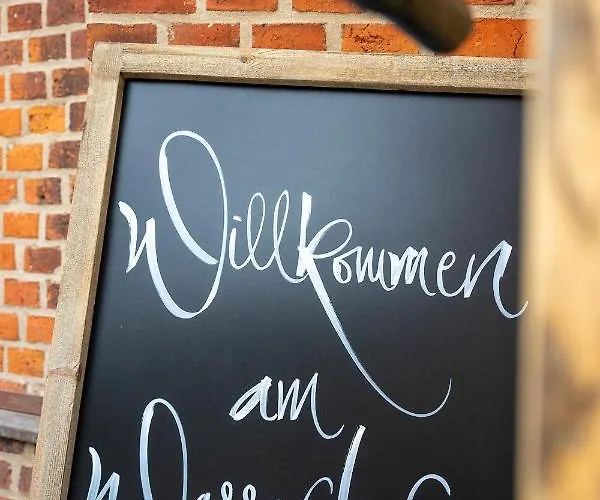 Willkommen
am